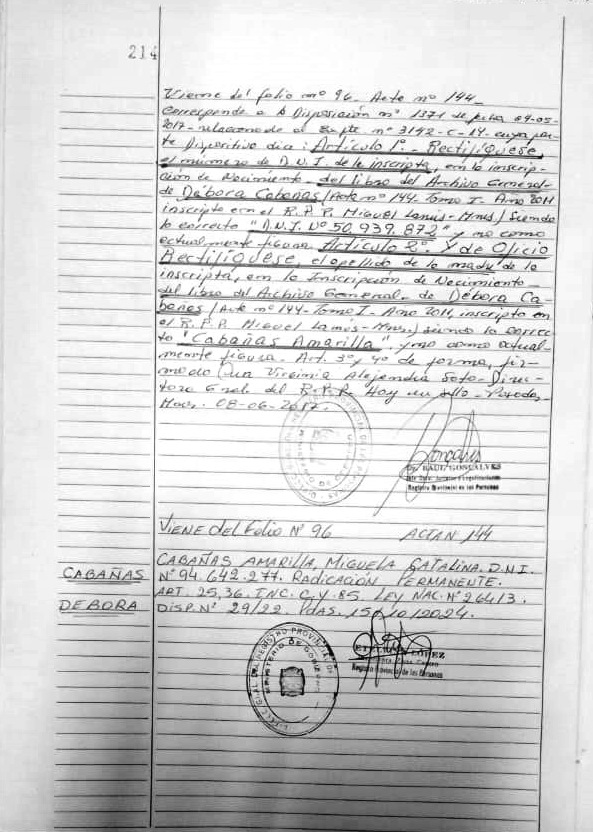 214
Viene del folio nº 96 - Acta nº 144 -
Corresponde a la Disposición nº 1371 de fecha 04-05-
2017 - relacionado al Expte nº 3142-C-14. cuya par-
te Dispositiva dice: Artículo 1º. - Rectifíquese
el número de D.N.I. de la inscripta, en la inscrip-
ción de Nacimiento - del libro del Archivo General -
de Débora Cabañas / Acta nº 144. Tomo I - Año 2011
inscripta en el R.P.P. Miguel Lanús - Mnes / Siendo
lo correcto "D.N.I. Nº 50.939.872" y no como
actualmente figura. Artículo 2º. Y de Oficio
Rectifíquese, el apellido de la madre de la
inscripta, en la Inscripción de Nacimiento -
del libro del Archivo General. de Débora Ca-
bañas / Acta nº 144 - Tomo I - Año 2011, inscripta en
el R.P.P. Miguel Lanús - Mnes / siendo lo correc-
to "Cabañas Amarilla", y no como actual-
mente figura. Art. 3º y 4º de forma, fir-
mado Dra Virginia Alejandra Soto - Direc-
tora Gral. del R.P.P. Hoy un sello - Posadas,
Mnes. 08-06-2017.
Dr. RAUL GONCALVES
Registro Provincial de las Personas
VIENE del Folio Nº 96 ACTA N 144
CABAÑAS
DEBORA
CABAÑAS AMARILLA, MIGUELA CATALINA. D.N.I.
Nº 94.642.277. RADICACIÓN PERMANENTE.
ART. 25,36. INC. C. Y. 85. LEY NAC. Nº 26413.
DISP. Nº 29/22. Pdas. 15/10/2024.
LOPEZ
Registro Provincial de las Personas
REGISTRO PROVINCIAL DE
MINISTERIO DE GOBIERNO